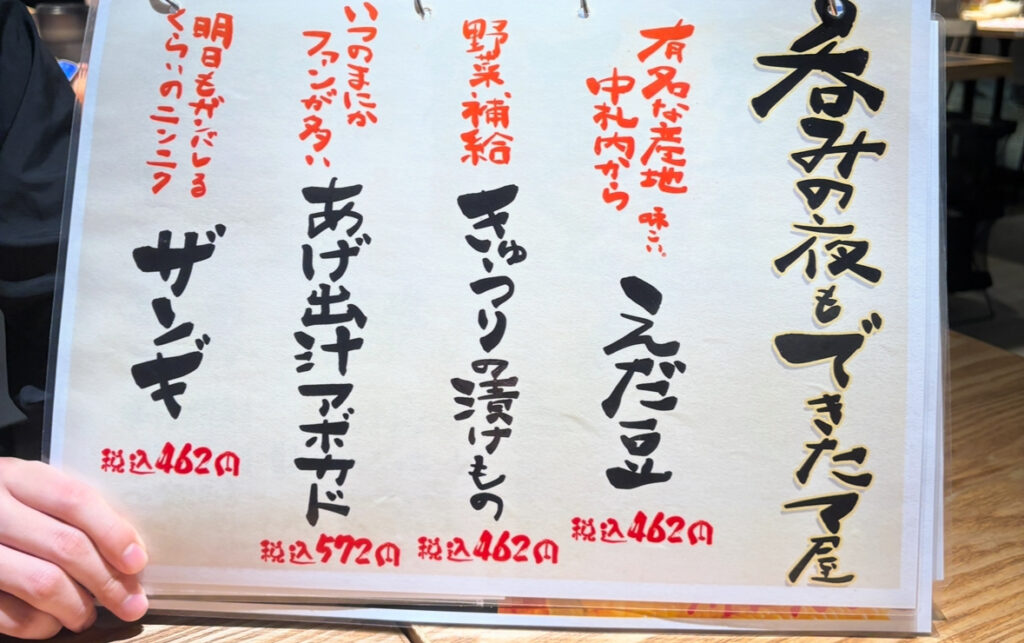 呑みの夜もできたマ屋
有名な産地
中札内から
味こい。
えだ豆
税込462円
野菜補給
きゅうりの漬けもの
税込462円
いつのまにか
ファンが多い
あげ出汁アボカド
税込572円
明日もガンバレる
くらいのニンニク
ザンギ
税込462円